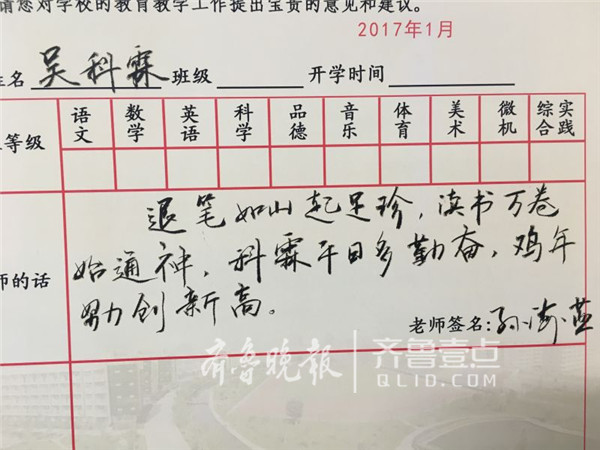 请您对学校的教育教学工作提出宝贵的意见和建议。
2017年1月
姓名 吴科霖 班级 开学时间
等级 语文 数学 英语 科学 品德 音乐 体育 美术 微机 综合实践
退笔如山起足珍，读书万卷
始通神，科霖平日多勤奋，鸡年
努力创新高。
师的话
老师签名:孙
齐鲁晚报 齐鲁壹点
QLID.COM